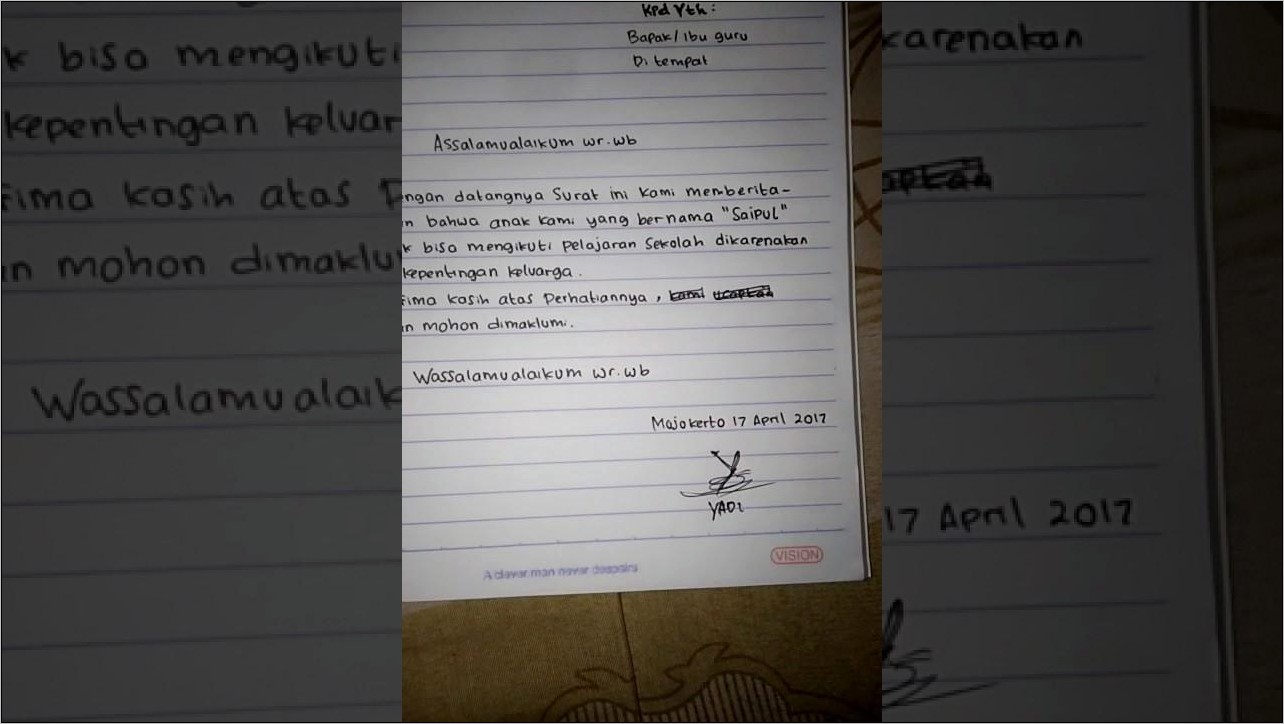 Kpd Yth :
Bapak/ Ibu guru
Di tempat
Assalamualaikum wr.wb
ngan datangnya Surat ini kami memberita-
n bahwa anak kami yang bernama "Saipul"
k bisa mengikuti pelajaran Sekolah dikarenakan
kepentingan keluarga.
rima kasih atas perhatiannya, kami ucapkan
n mohon dimaklumi.
Wassalamualaikum wr.wb
Mojokerto 17 April 2017
YADI
VISION
A clever man never